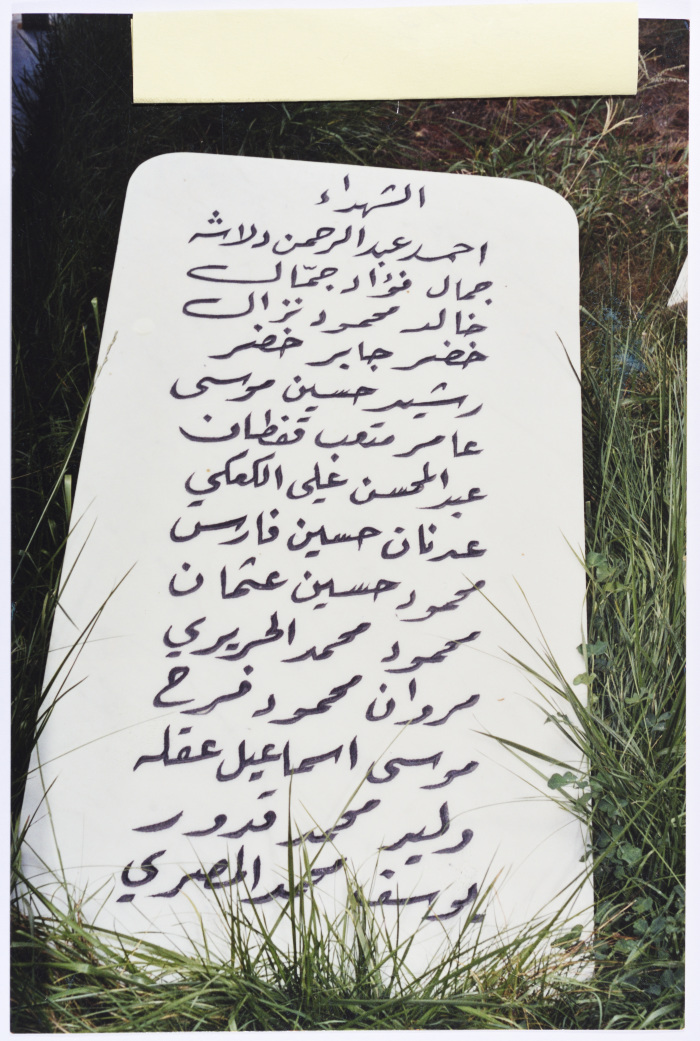 الشهداء
احمد عبدالرحمن دلاشه
جمال فؤاد جمّال
خالد محمود نزال
خضر جابر خضر
رشيد حسين موسى
عامر متعب قفطان
عبدالمحسن علي الكعكي
عدنان حسين فارس
محمود حسين عثمان
محمود محمد الحريري
مروان محمود فرح
موسى اسماعيل عقله
وليد محمد قدور
يوسف محمد المصري